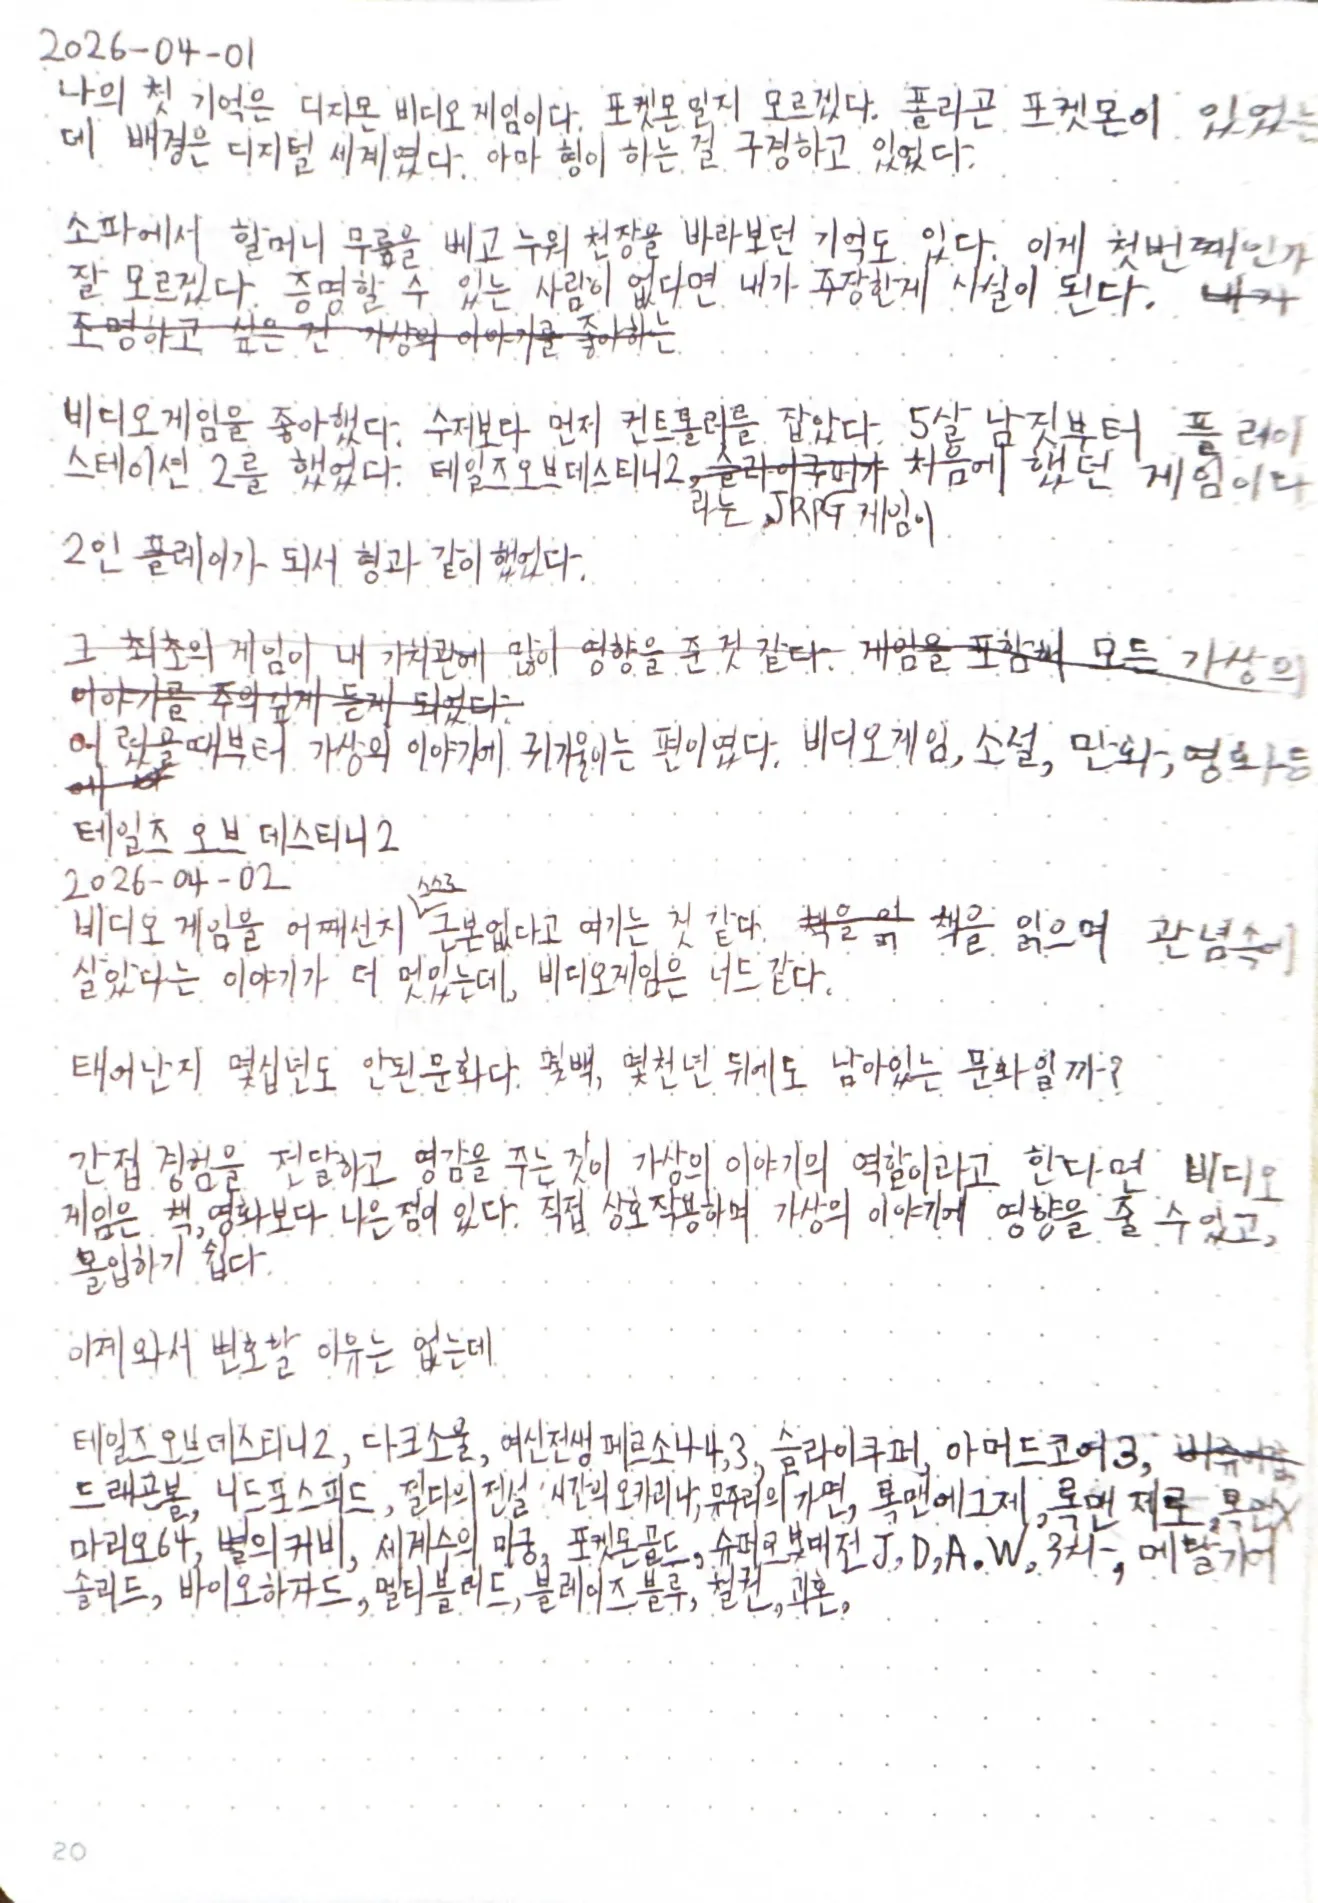 2026-04-01
나의 첫 기억은 디지몬 비디오 게임이다. 포켓몬일지 모르겠다. 폴리곤 포켓몬이 있었는
데 배경은 디지털 세계였다. 아마 형이 하는 걸 구경하고 있었다.
소파에서 할머니 무릎을 베고 누워 천장을 바라보던 기억도 있다. 이게 첫번째인가
잘 모르겠다. 증명할 수 있는 사람이 없다면 내가 주장한게 사실이 된다. 내가
조명하고 싶은 건 가상의 이야기를 좋아하는
비디오게임을 좋아했다. 수저보다 먼저 컨트롤러를 잡았다. 5살 남짓부터 플레이
스테이션 2를 했었다. 테일즈오브데스티니2, 슬라이쿠퍼가 처음에 했던 게임이다
라는 JRPG 게임이
2인 플레이가 되서 형과 같이 했었다.
그 최초의 게임이 내 가치관에 많이 영향을 준 것 같다. 게임을 포함해 모든 가상의
이야기를 주의깊게 듣게 되었다.
어렸을때부터 가상의 이야기에 귀기울이는 편이였다. 비디오게임, 소설, 만화, 영화등
테일즈 오브 데스티니2
2026-04-02
스스로
비디오 게임을 어째선지 근본없다고 여기는 것 같다. 책을 읽 책을 읽으며 관념속에
살았다는 이야기가 더 멋있는데, 비디오게임은 너드같다.
태어난지 몇십년도 안된문화다. 몇백, 몇천년 뒤에도 남아있는 문화일까?
간접 경험을 전달하고 영감을 주는것이 가상의 이야기의 역할이라고 한다면 비디오
게임은 책, 영화보다 나은점이 있다. 직접 상호작용하며 가상의 이야기에 영향을 줄 수있고,
몰입하기 쉽다.
이제와서 변호할 이유는 없는데
테일즈오브데스티니2, 다크소울, 여신전생 페르소나4,3, 슬라이쿠퍼, 아머드코어3,
드래곤볼, 니드포스피드, 젤다의전설:시간의오카리나, 무쥬라의가면, 록맨에그제, 록맨제로, 록맨X
마리오64, 별의커비, 세계수의 미궁, 포켓몬골드, 슈퍼로봇대전 J, D, A. W, 3차, 메탈기어
솔리드, 바이오하자드, 멜티블러드, 블레이즈블루, 철권, 괴혼,
20